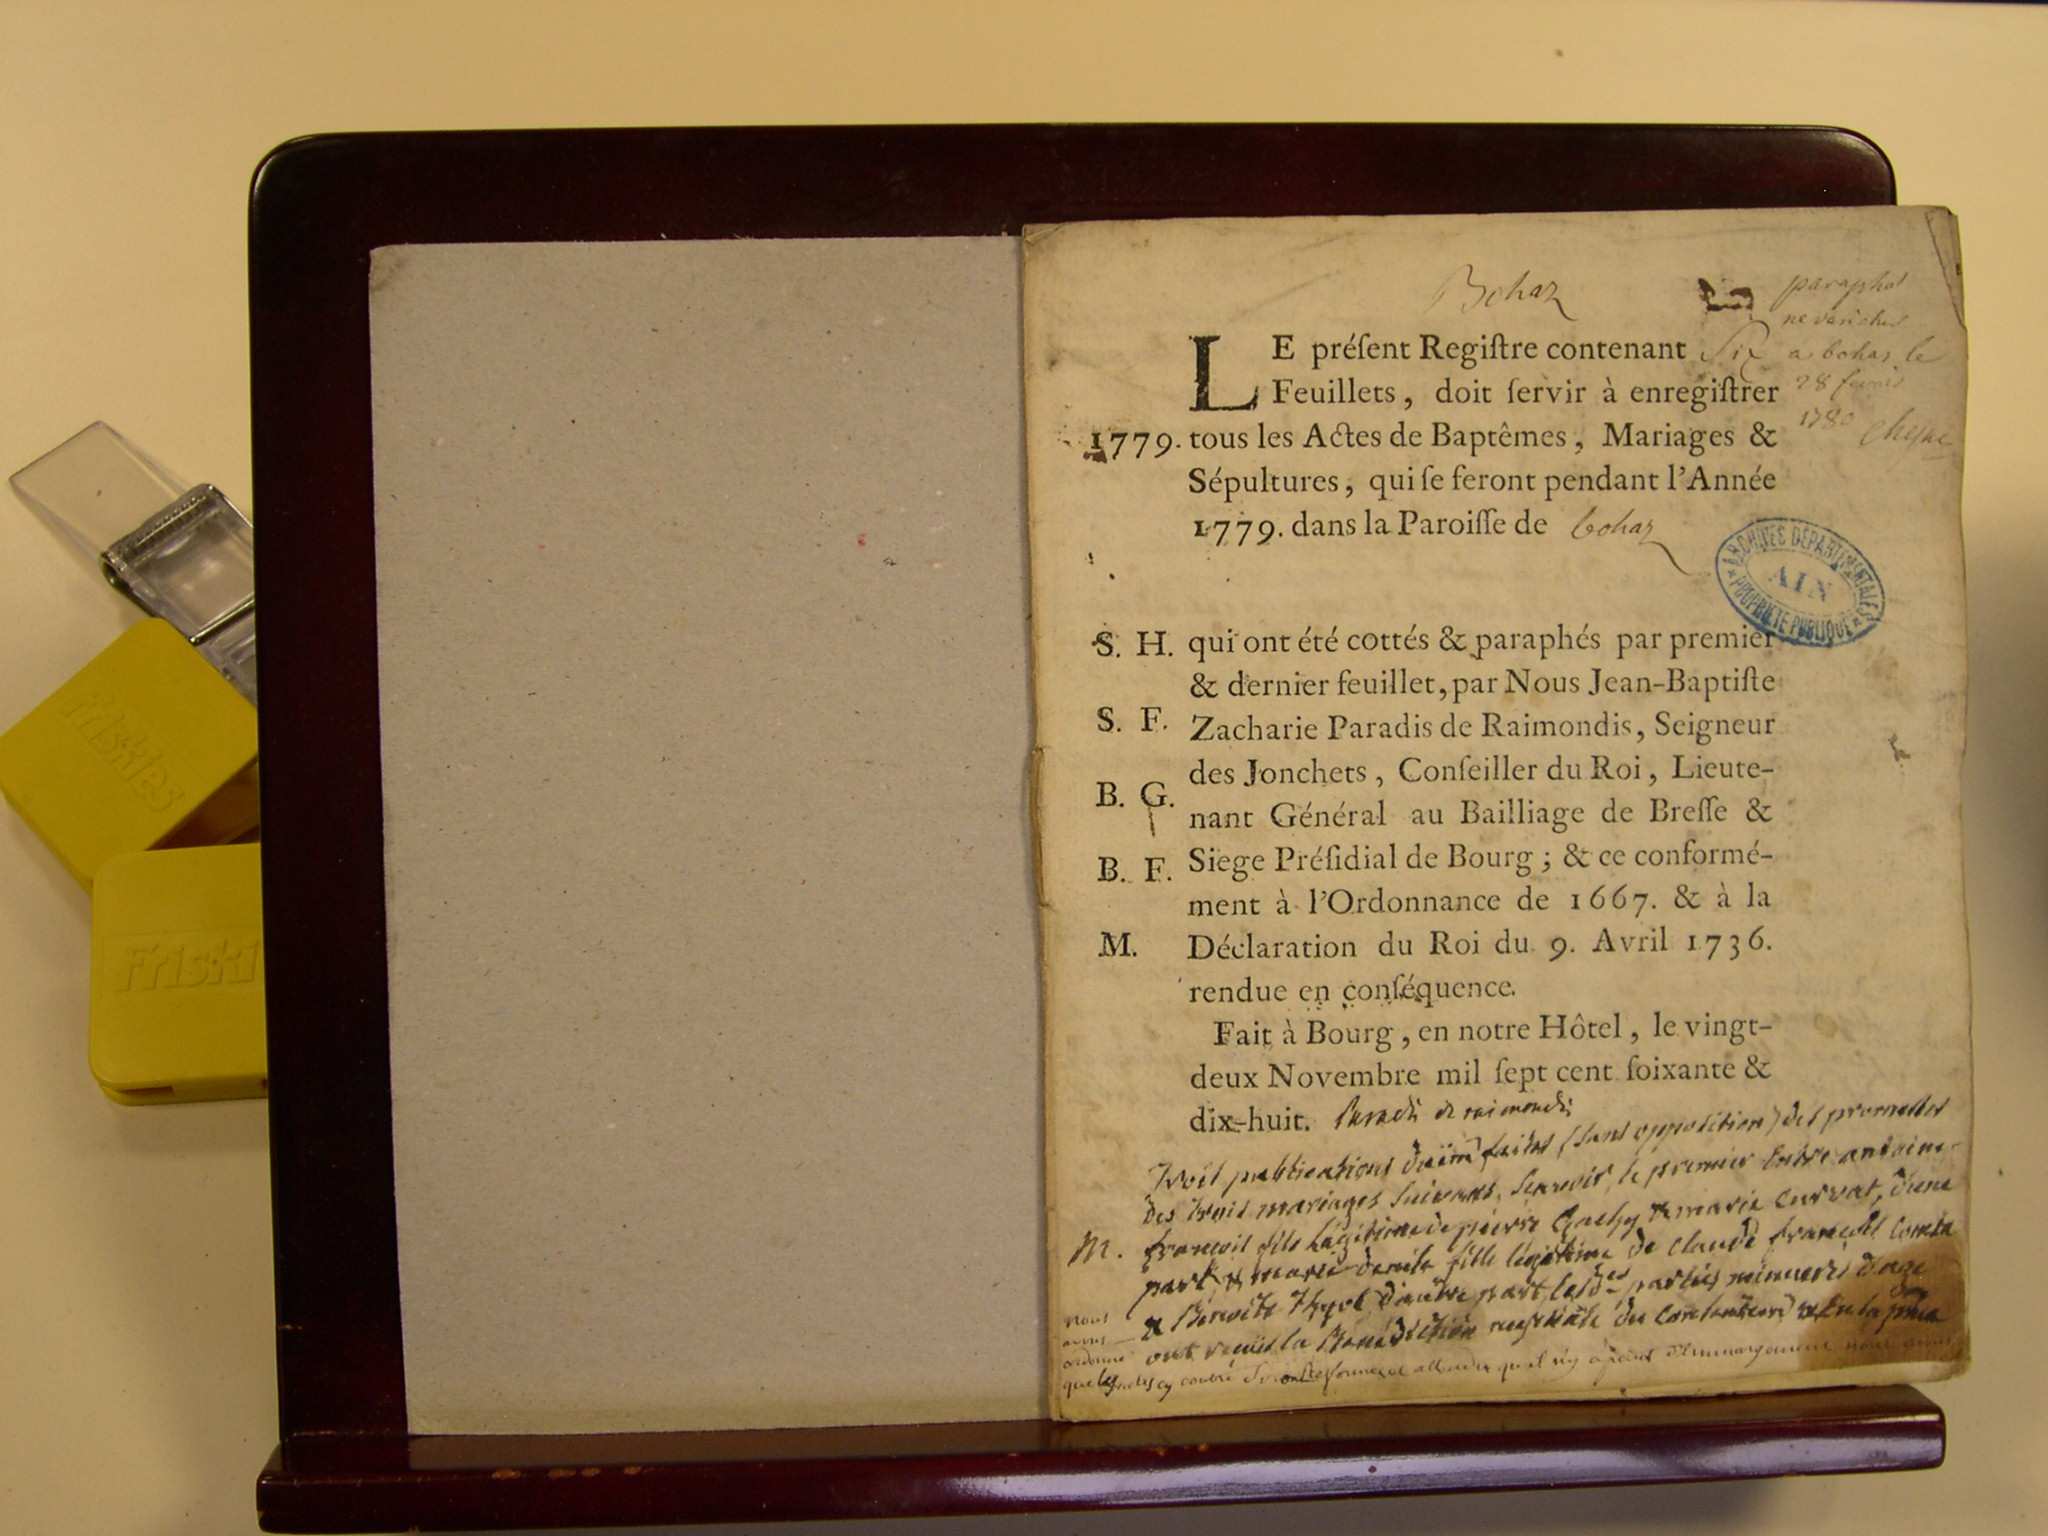 Bohaz
paraphé
ne varietur
a bohas le
28
1780
LE préſent Regiſtre contenant Six
Feuillets, doit ſervir à enregiſtrer
1779. tous les Actes de Baptêmes, Mariages &
Sépultures, qui ſe feront pendant l'Année
1779. dans la Paroiſſe de bohaz
ARCHIVES DÉPARTEMENTALES
AIN
PROPRIÉTÉ PUBLIQUE
S. H. qui ont été cottés & paraphés par premier
& dernier feuillet, par Nous Jean-Baptiſte
S. F. Zacharie Paradis de Raimondis, Seigneur
des Jonchets, Conſeiller du Roi, Lieute-
B. G. nant Général au Bailliage de Breſſe &
B. F. Siege Préſidial de Bourg ; & ce conformé-
ment à l'Ordonnance de 1667. & à la
M. Déclaration du Roi du 9. Avril 1736.
rendue en conſéquence.
Fait à Bourg, en notre Hôtel, le vingt-
deux Novembre mil ſept cent ſoixante &
dix-huit. Paradis de raimondis
trois publications faites (sans opposition) des promesses
des trois mariages suivants, sçavoir, le premier Entre antoine
M. françois fils légitime de pierre & marie Curvat, d'une
part, & marie fille légitime de Claude françois
& Benoite d'autre part, lesd. parties mineures d'age
ont reçues la Bénédiction nuptiale du
nous
avons
ordonné
que les
Friskies
Friski